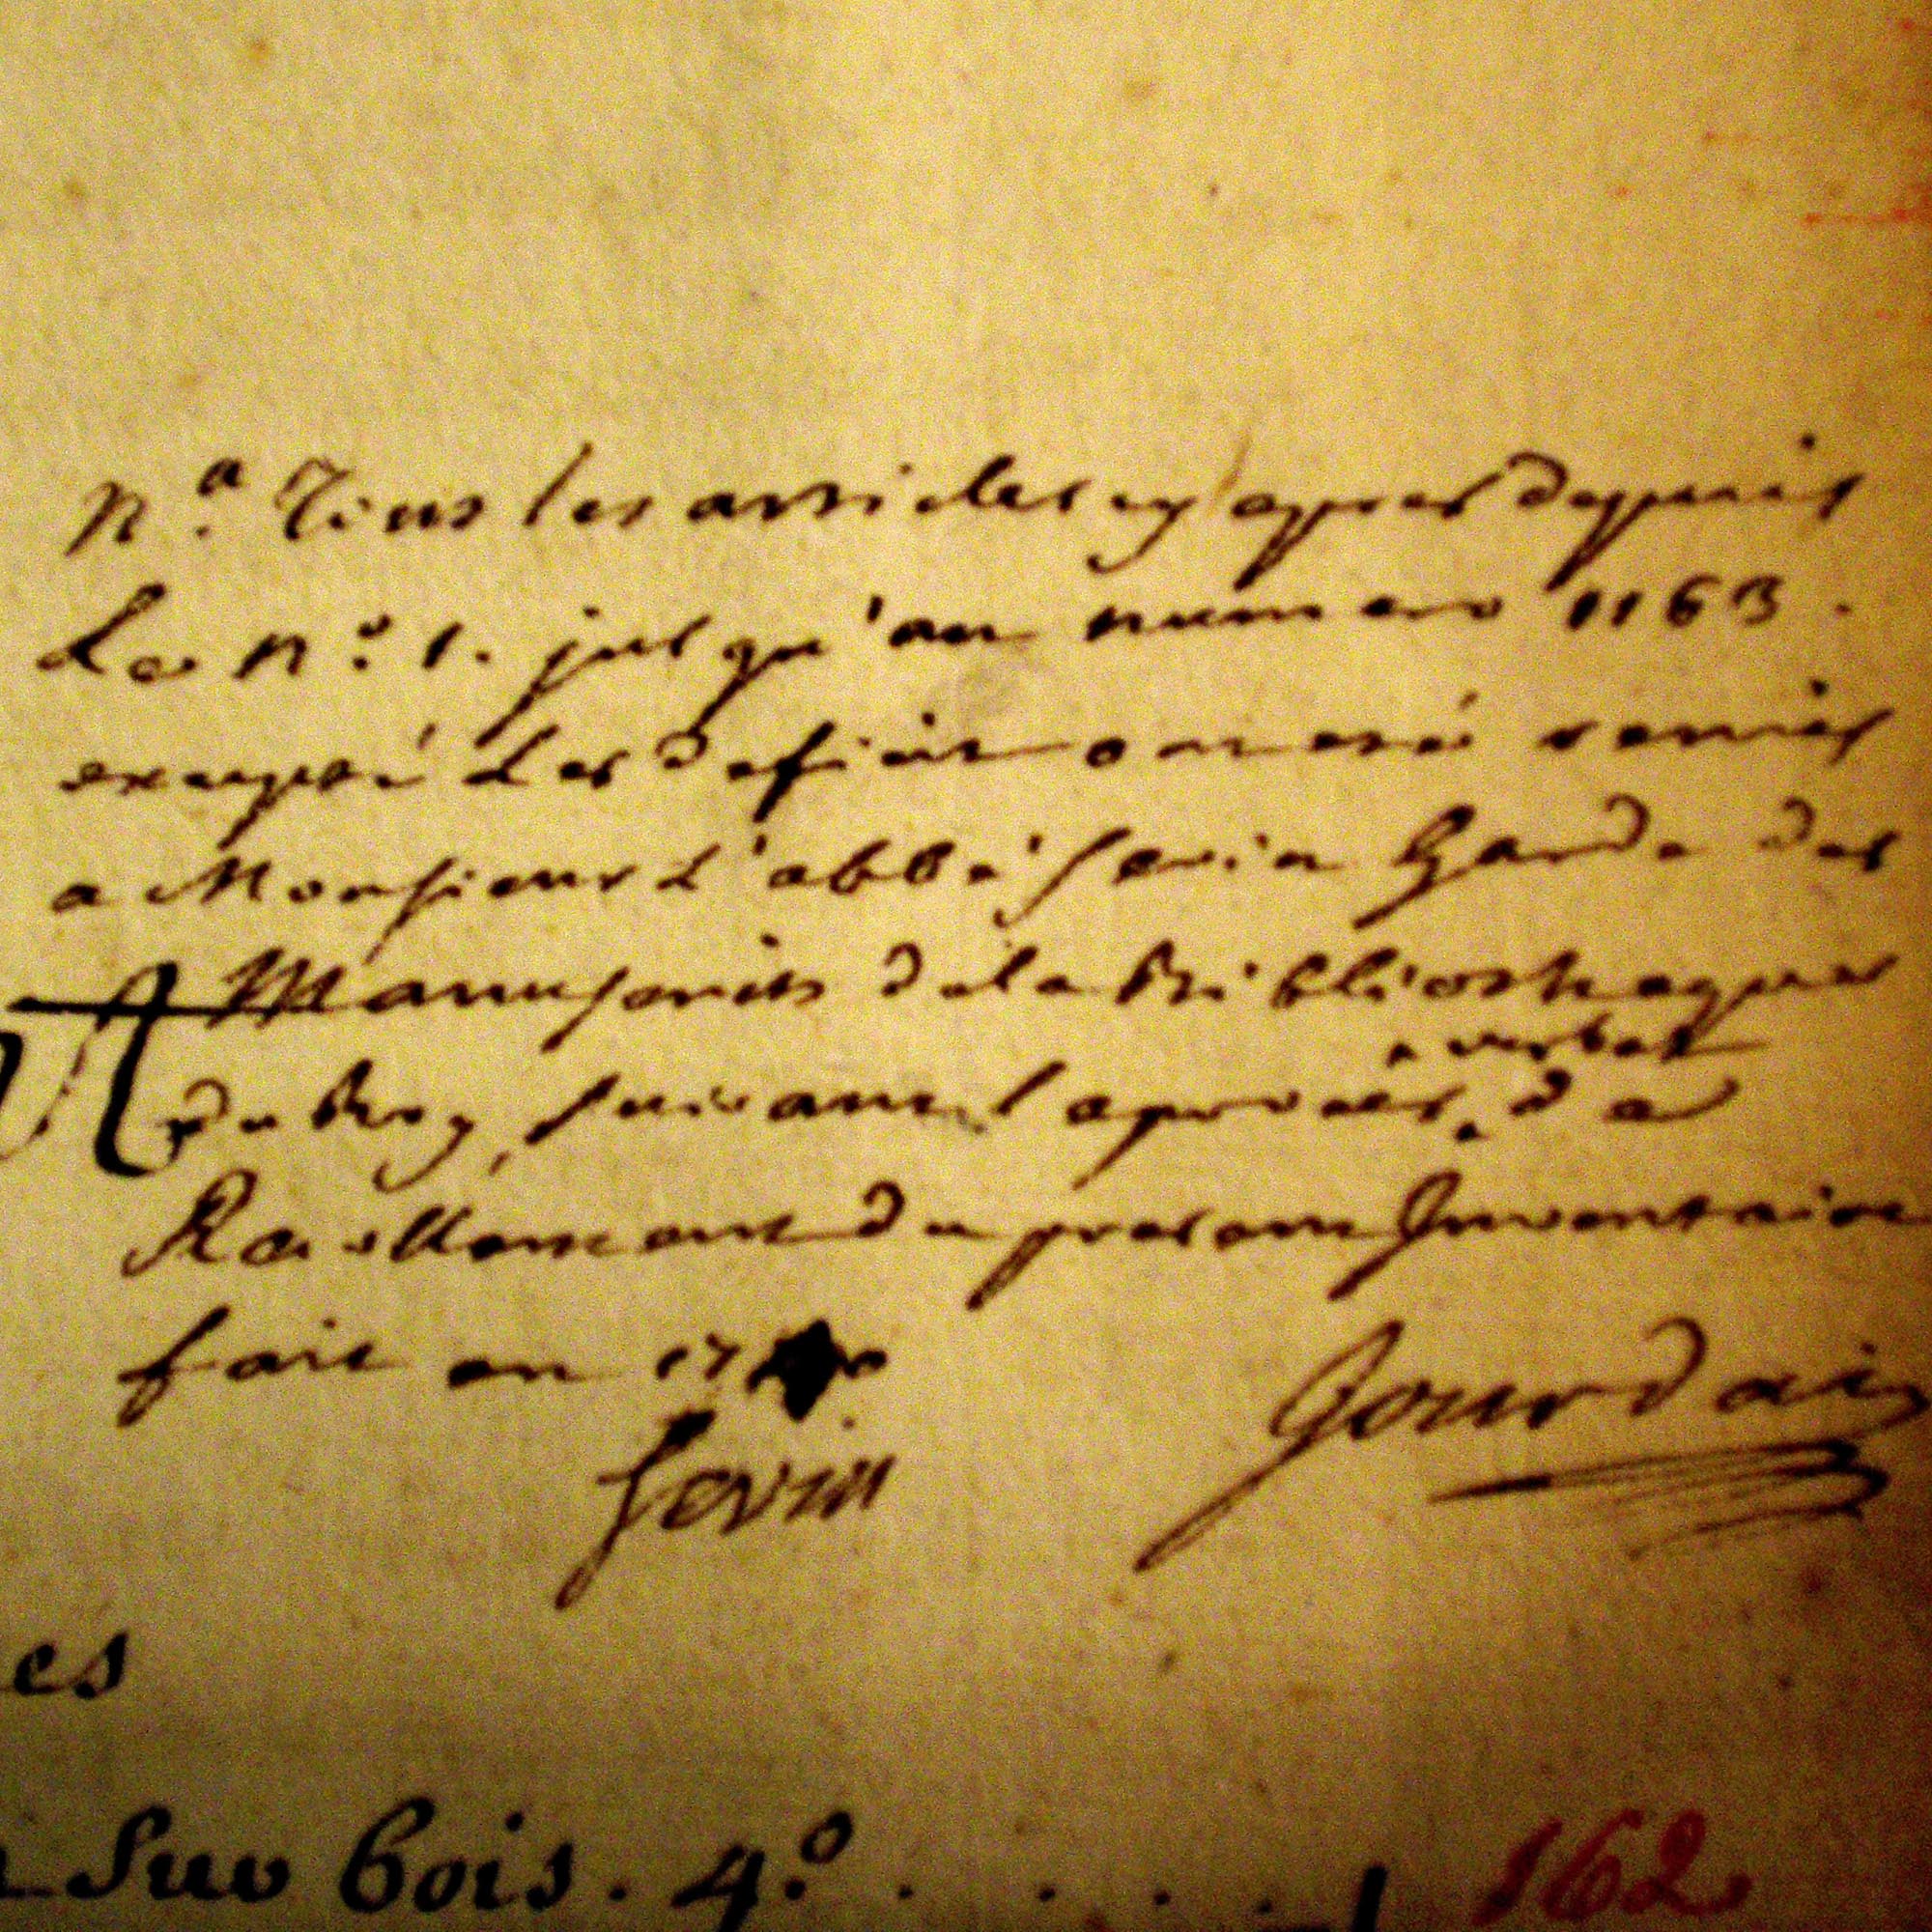 Na. Tous les articles cy apres depuis
Le No. 1. jusqu'au numero 1163.
excepté Les deficit ont eté remis
a Monsieur L'abbé Sevin Garde des
Manuscrits de la Bibliotheque
verbal
du Roy, suivant le proces de
Recollement du present Inventaire
fait en
Sevin Jourdain
es
Sur bois. 4o. . . . .
162